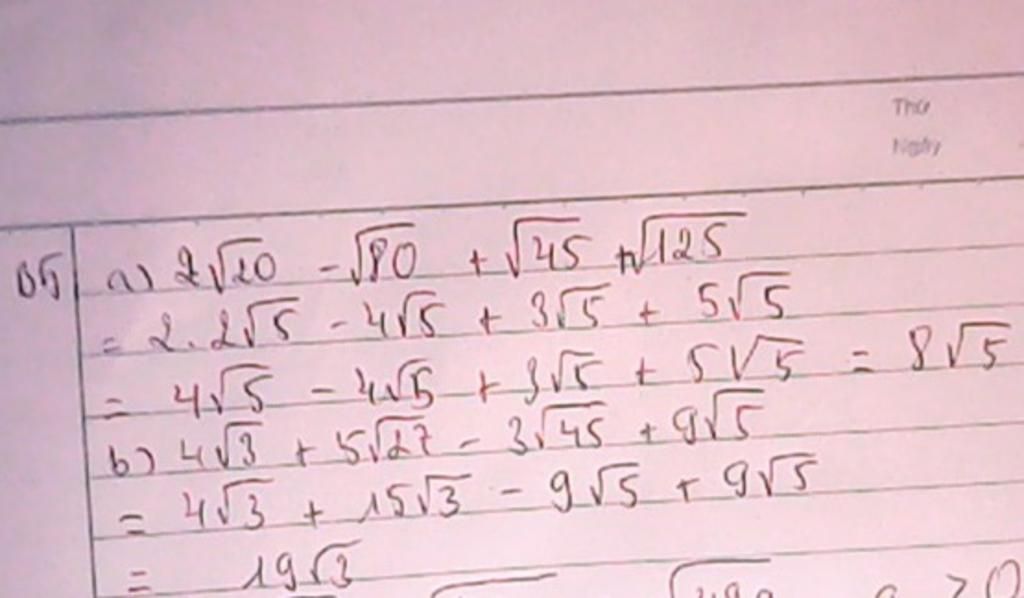 Thứ
Ngày
B5 a) 2√20 - √80 + √45 + √125
= 2.2√5 - 4√5 + 3√5 + 5√5
= 4√5 - 4√5 + 3√5 + 5√5 = 8√5
b) 4√3 + 5√27 - 3√45 + 9√5
= 4√3 + 15√3 - 9√5 + 9√5
= 19√3